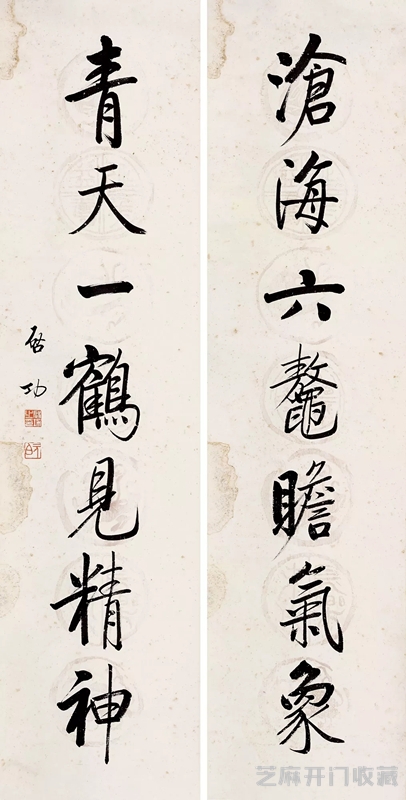 滄海六鼇瞻氣象
青天一鶴見精神
啓功
芝麻开门收藏